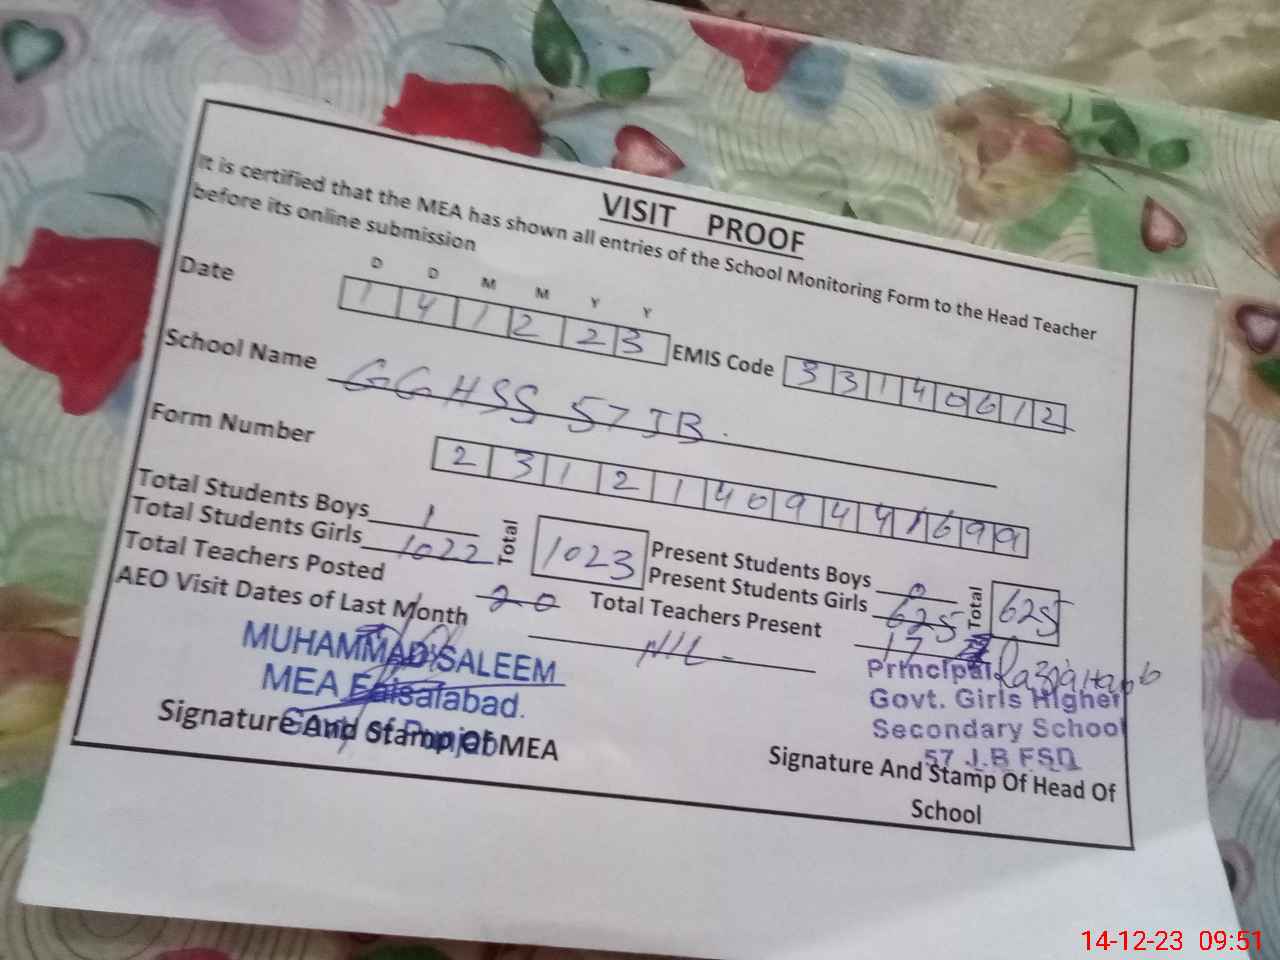 VISIT PROOF
It is certified that the MEA has shown all entries of the School Monitoring Form to the Head Teacher
before its online submission
D D M M Y Y
Date 1 4 1 2 2 3 EMIS Code 3 3 1 4 0 6 1 2
School Name GGHSS 57 JB.
Form Number 2 3 1 2 1 4 0 9 4 4 1 6 9 9
Total Students Boys 1 Total 1023 Present Students Boys 0 Total 625
Total Students Girls 1022 Present Students Girls 625
Total Teachers Posted 20 Total Teachers Present 17
AEO Visit Dates of Last Month NIL
MUHAMMAD SALEEM
MEA Faisalabad.
Govt of Punjab
Signature And Stamp Of MEA
Principal
Govt. Girls Higher
Secondary School
57 J.B FSD
Signature And Stamp Of Head Of
School
14-12-23 09:51